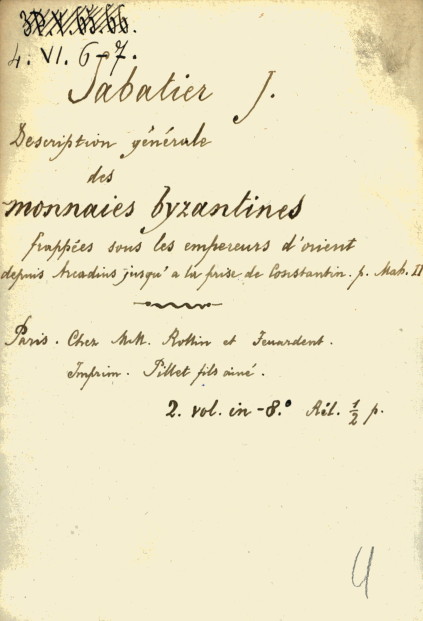 3D.V.65.66.
4. VI. 6-7.
Sabatier J.
Description générale
des
monnaies byzantines
frappées sous les empereurs d'orient
depuis Arcadius jusqu'a la prise de Constantin. p. Mah. II
Paris. Chez MM. Rollin et Feuardent.
Imprim. Pillet fils ainé.
2. vol. in-8.° Rel. 1/2 p.
4